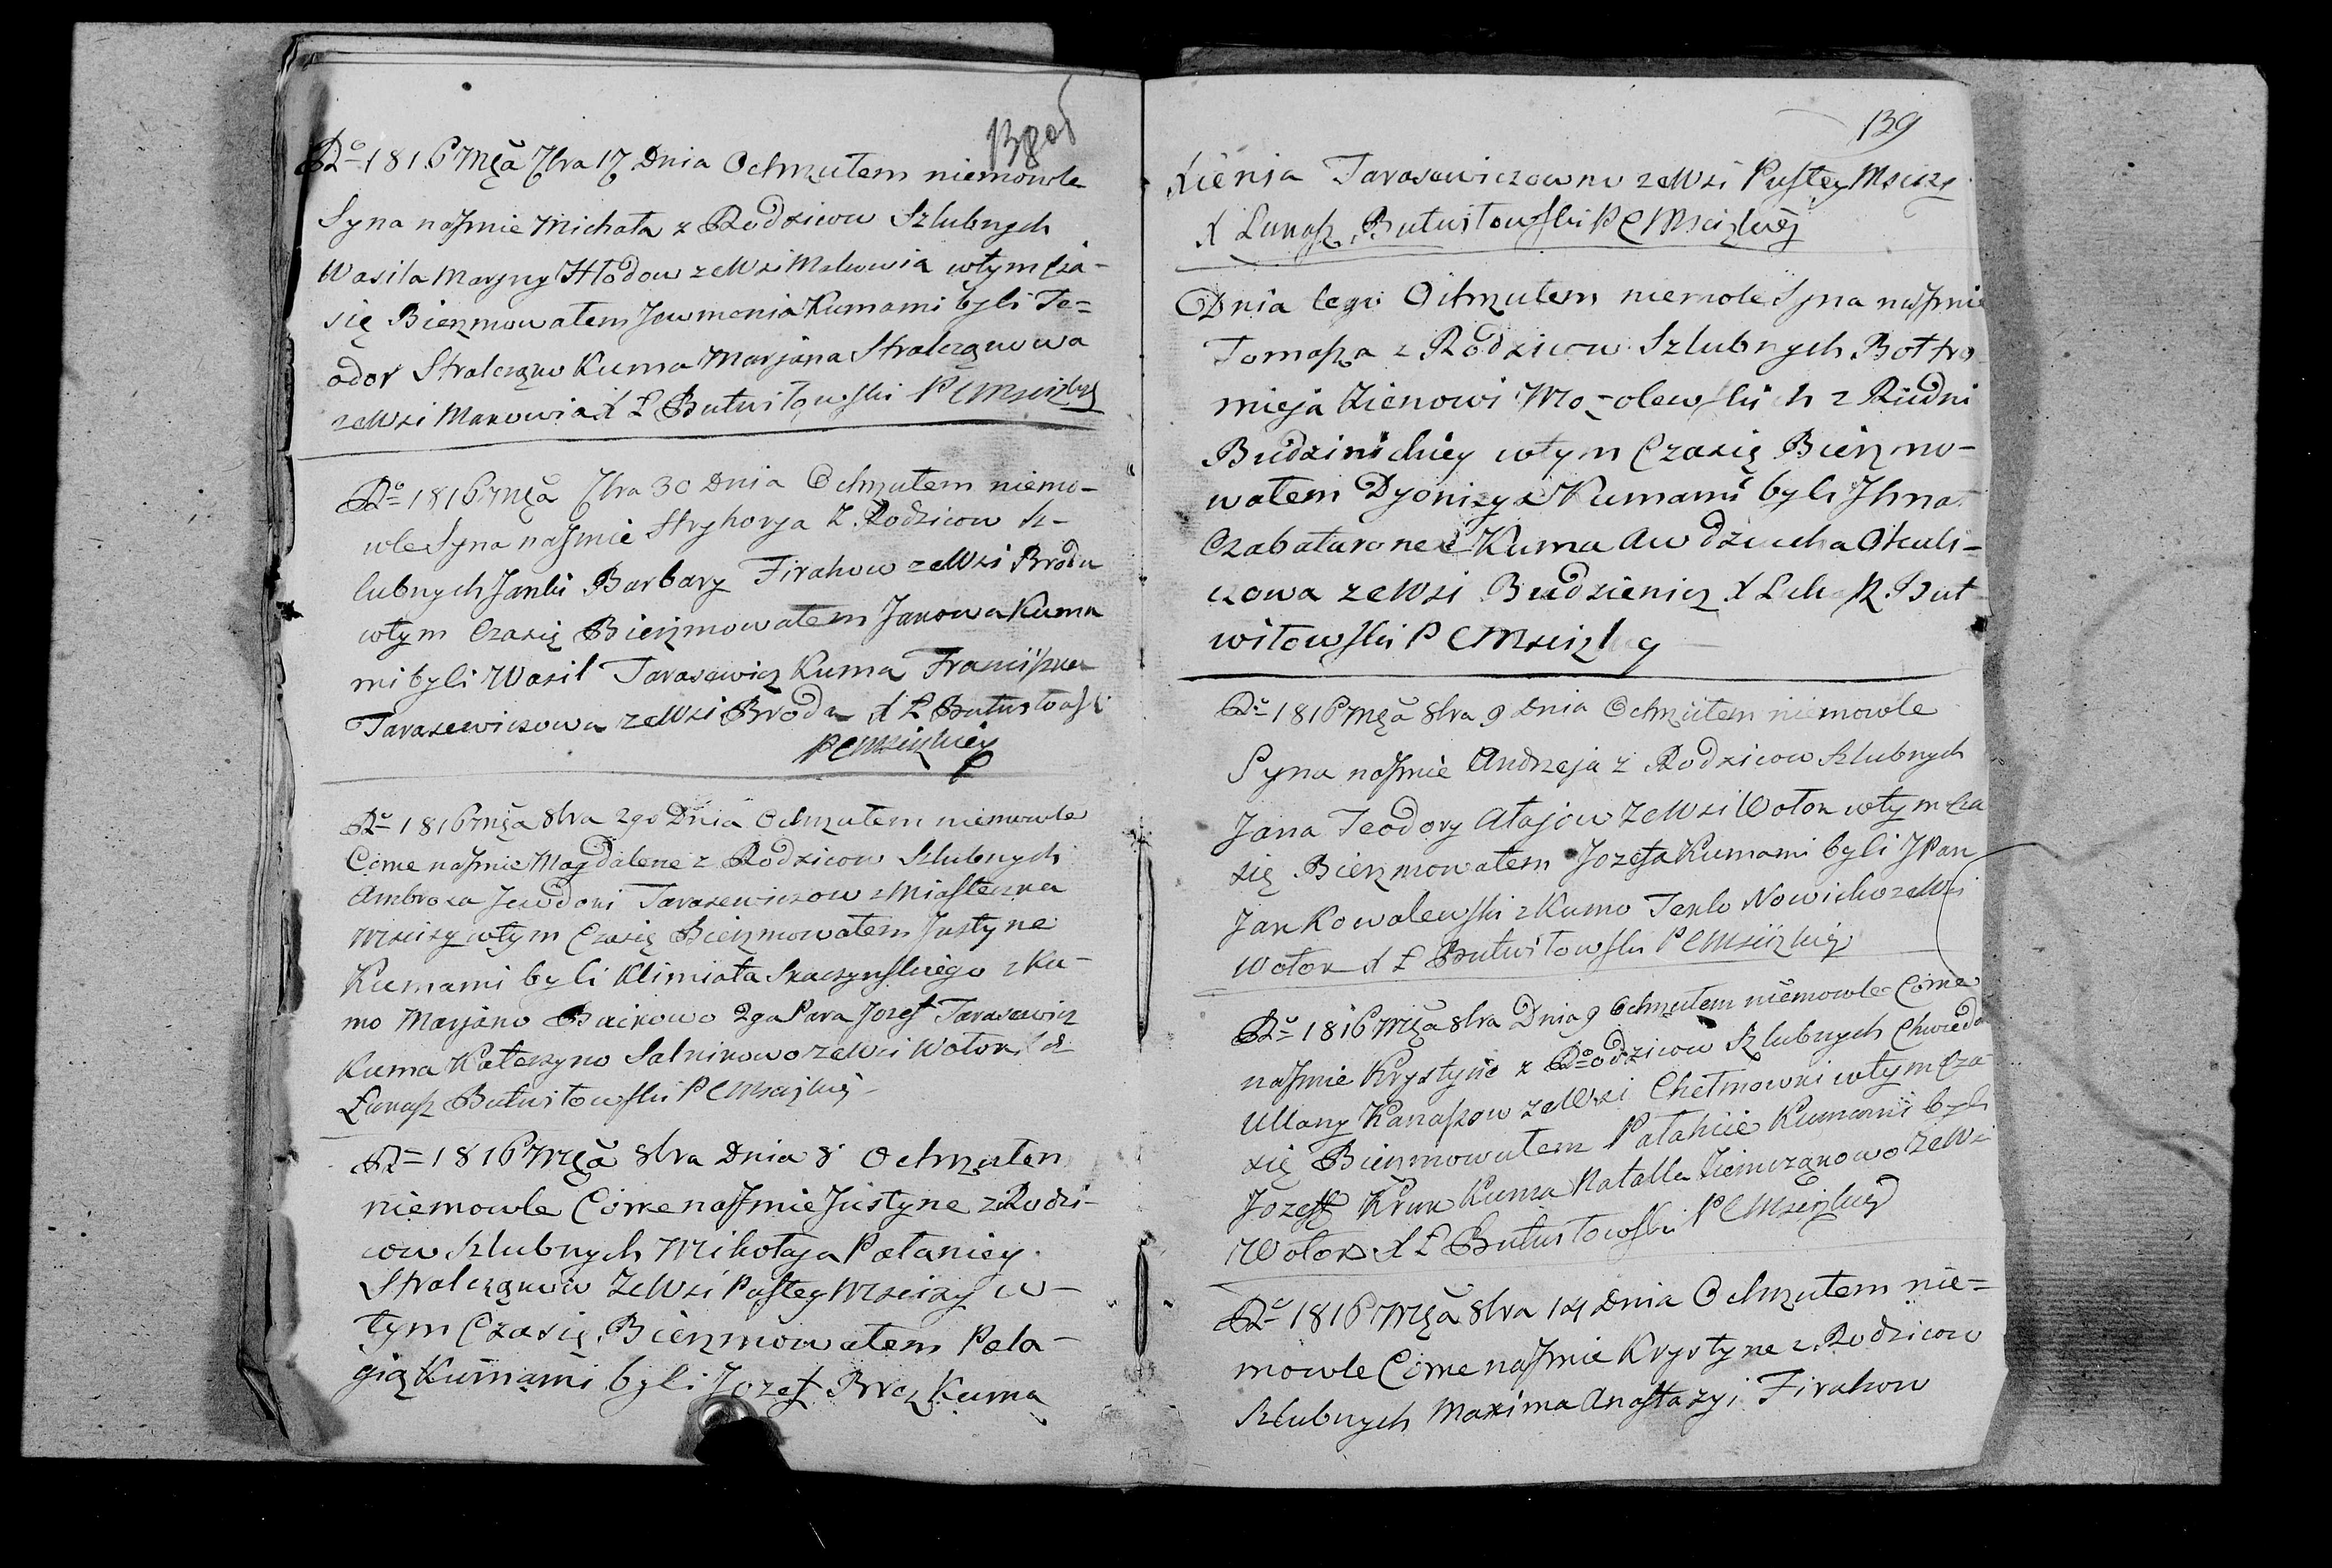 138 об
Ro 1816 Mca 7bra 17 Dnia Ochrzułem niemowle
Syna na Jmie Michała z Rodzicow Szlubnych
Wasila Maryny Hłodow ze Wsi Makowia wtym Cza-
się Bierzmowałem Kumami byli Te=
odor Stralczqnw Kuma Marjana Stralczqnowa
ze Wsi Makowia X Ł Butwiłowski P C Mscizkey
Ro 1816 Mca 7bra 30 Dnia Ochrzułem niemo-
wle Syna na Jmie Hryhorya z Rodzicow Sz-
lubnych Janki Barbary Firahow ze Wsi Brodu
wtym Czasię Bierzmowałem Janowa Kuma
mi byli Wasil Tarasewicz Kuma Franciszka
Tarasewiczowa ze Wsi Broda X Ł Butwiłowski
P C Mscizkiey
Ro 1816 Mca 8bra 2go Dnia Ochrzułem niemowle
Corne na Jmie Magdalene z Rodzicow Szlubnych
Ambroza Jewdoki Tarasewiczow z Miasteczka
Mscizy wtym Czasię Bierzmowałem Justyne
Kumami byli Klimiata Skaczynskiego z Ku-
mo Marjano 2ga Para Jozef Tarasewicz
Kuma Katerzyno Salnikowo ze Wsi Wołok X
Łukasz Butwiłowski P C Mscizkiej
Ro 1816 Mca 8bra Dnia 8 Ochrzułem
niemowle Corne na Jmie Justyne z Rodzi-
cow Szlubnych Mikołaja Połaniey
Stralczqnow ze Wsi Pustey Mscizy w-
tym Czasię Bierzmowałem Pela-
gią Kumami byli Jozef Kuma
139
Xienia Tarasewiczowna ze Wsi Pustey Mscizy
X Łukasz Butwiłowski P C Mscizkiej
Dnia tego Ochrzułem niemole Syna na Jmie
Tomasza z Rodzicow Szlubnych Bołtro
mieja Zienowi Mozolewskich z Rudni
Budzinichiey wtym Czasię Bierzmo-
wałem Dyonizya Kumami byli Jhnat
Czabataronek Kuma Awdziucha
czowa ze Wsi Budzienicz X Lukasz But
wiłowski P C Mscizkey
Ro 1816 Mca 8bra 9 Dnia Ochrzułem niemowle
Syna na Jmie Andrzeja z Rodzicow Szlubnych
Jana Teodory Ałajow ze Wsi Wołok wtym Cza
się Bierzmowałem Jozefa Kumami byli JPan
Jan Kowalewski z Kumo Teklo Nowicko ze Wsi
Wołok X Ł Butwiłowski P C Mscizkiej
Ro 1816 Mca 8bra Dnia 9 Ochrzułem niemowle Corne
na Jmie Krystyne z Rodzicow Szlubnych Chwiedo
Ullany Kanaszow ze Wsi Chełmowki wtym Cza-
się Bierzmowałem Pałahiie Kumami byli
Jozef Kruk Kuma Natalla Ziemczqnowo ze Wsi
Wołok X Ł Butwiłowski P C Mscizkiej
Ro 1816 Mca 8bra 14 Dnia Ochrzułem nie=
mowle Corne na Jmie Krystyne z Rodzicow
Szlubnych Maxima Anastazyi Firahow